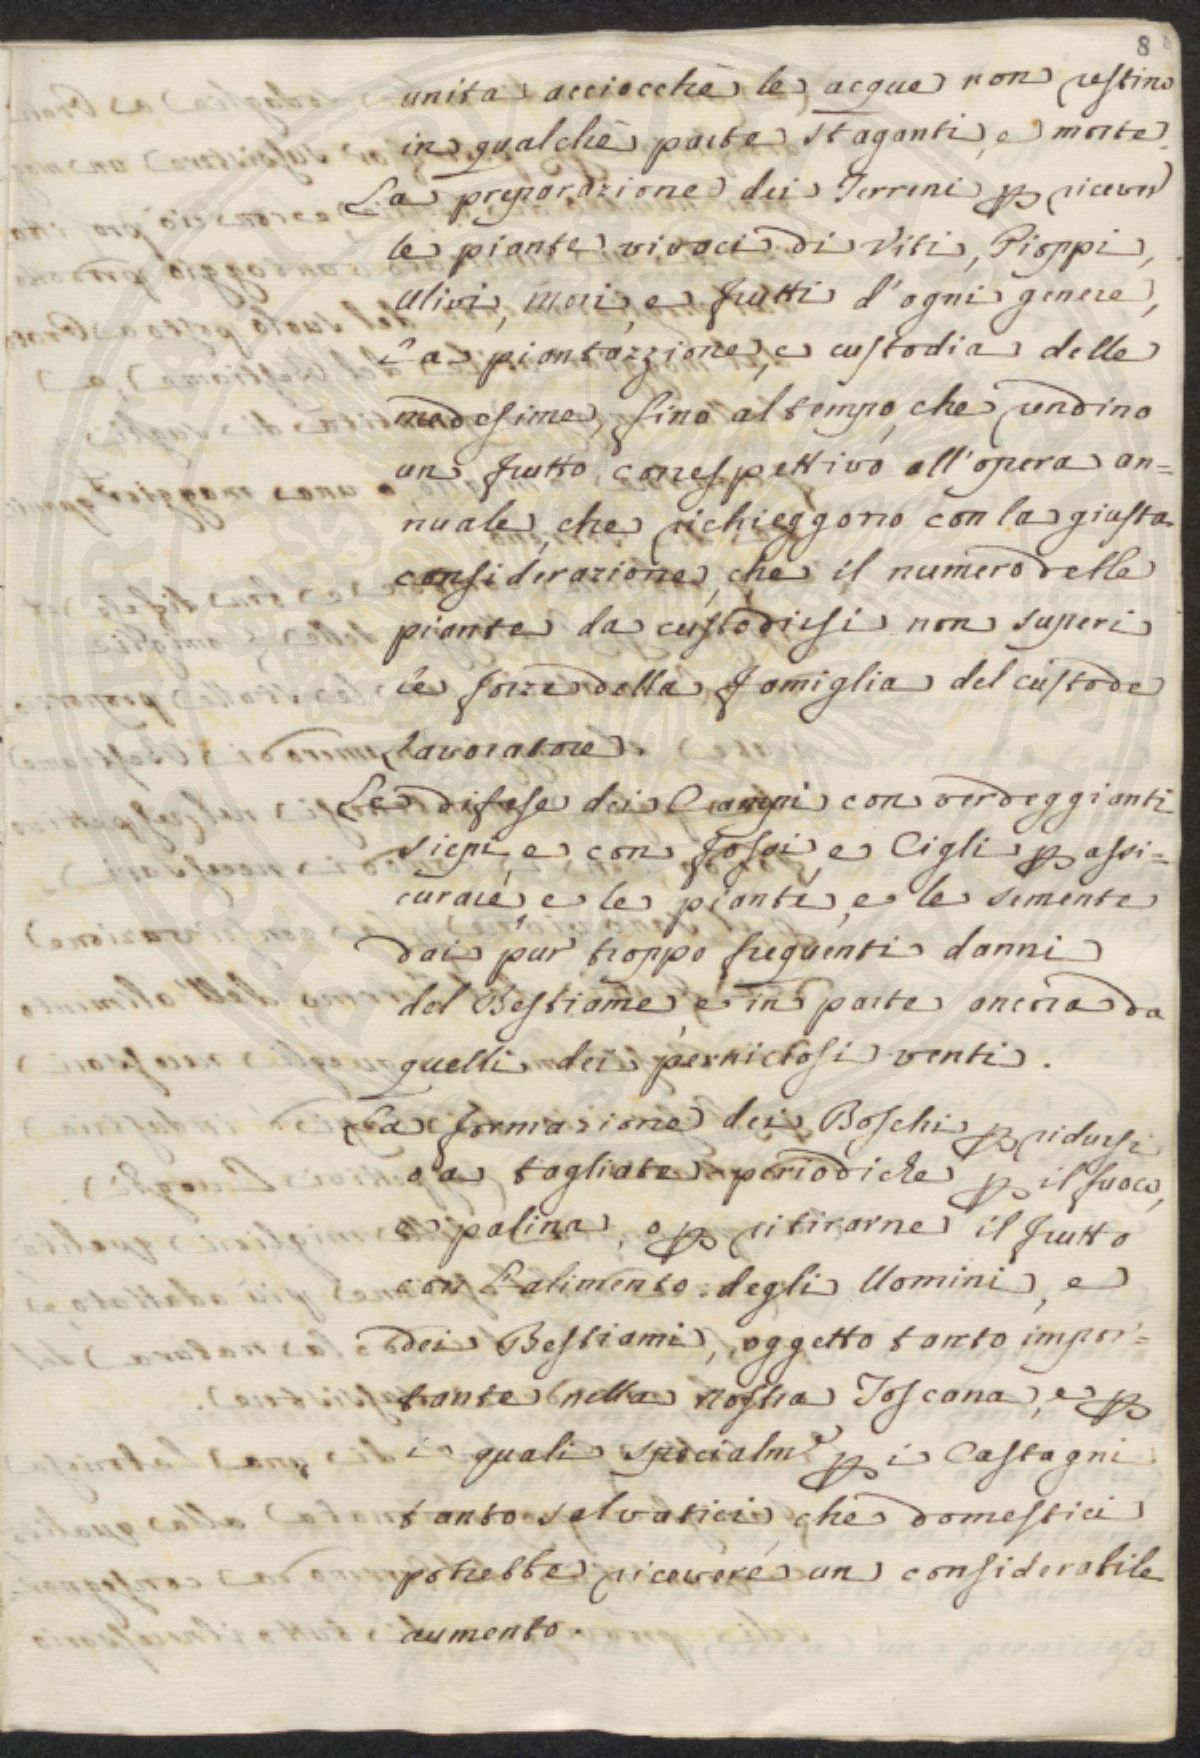 8
unita acciocchè le acque non restino
in qualche parte staganti, e morte.
La preparazione dei Terreni p ricever
le piante vivaci di Viti, Pioppi,
Ulivi, Mori, e frutti d'ogni genere,
La piantazzione, e custodia delle
medesime, fino al tempo, che rendino
un frutto correspettivo all'opera an=
nuale, che richieggono con la giusta
considerazione, che il numero delle
piante da custodirsi non superi
le forze della famiglia del custode
Lavoratore.
Le difese dei Campi con verdeggianti
siepi, e con fossi, e Cigli p assi=
curare, e le piante, e le semente
dai pur troppo frequenti danni
del Bestiame, e in parte ancora da
quelli dei perniciosi venti.
La formazione dei Boschi p ridursi
o a tagliate periodiche p il fuoco,
e palina, o p ritirarne il frutto
con L'alimento degli Uomini, e
dei Bestiami, oggetto tanto impor=
tante nella nostra Toscana, e p
i quali specialm.e p i Castagni
tanto selvatici, che domestici
potrebbe ricevere un considerabile
aumento.